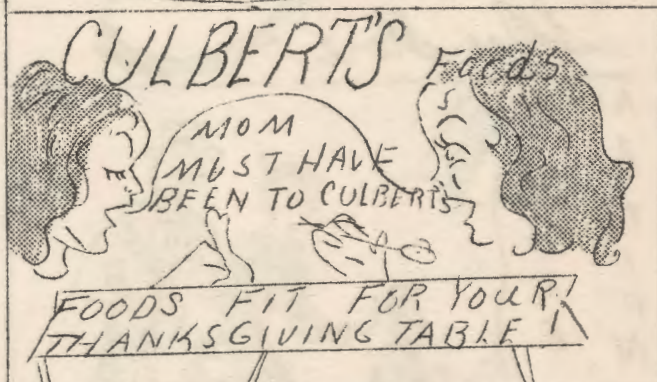 CULBERT'S Foods
MOM
MUST HAVE
BEEN TO CULBERTS
FOODS FIT FOR YOUR
THANKSGIVING TABLE!